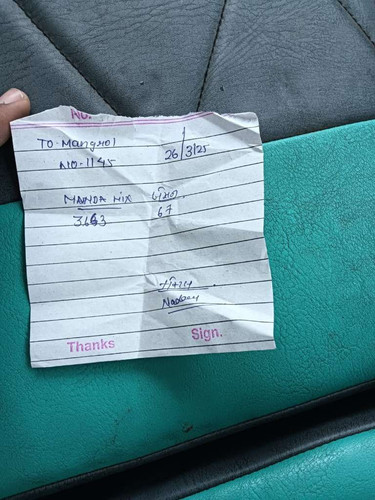 No.
TO-Mangrol
NO-1145
26/3/25
MANDA MIX
3663
67
Thanks
Sign.